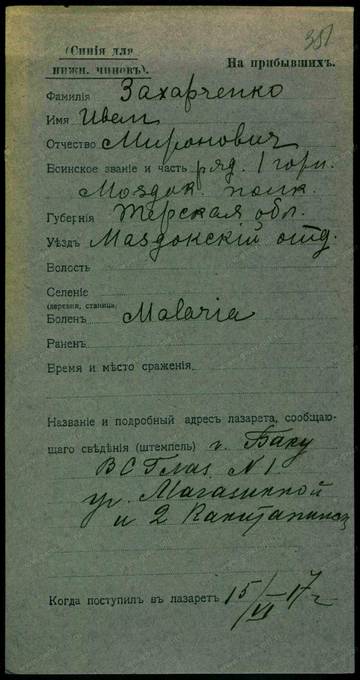 351
(Синія для нижн. чиновъ).
На прибывшихъ.
Фамилія Захарченко
Имя Ивел
Отчество Миронович
Воинское званіе и часть ряд. 1 горн.
Моздок. полк.
Губернія Терская обл.
Уѣздъ Маздокскій отд.
Волость
Селеніе
(деревня, станица)
Боленъ Malaria
Раненъ
Время и мѣсто сраженія.
Названіе и подробный адресъ лазарета, сообщаю-
щаго свѣдѣнія (штемпель) г. Баку
ВС №1
уг. Магазинной
и 2
Когда поступилъ въ лазаретъ 15/VI 17 г